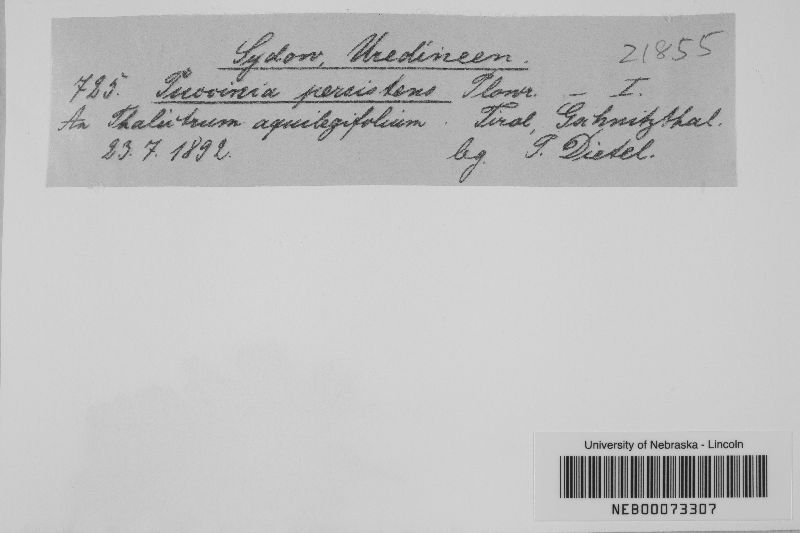 Sydow, Uredineen.
21855
725. Puccinia persistens Plowr. – I.
An Thalictrum aquilegifolium. Tirol, Gschnitzthal.
23.7.1892. leg. P. Dietel.
University of Nebraska - Lincoln
NEB00073307